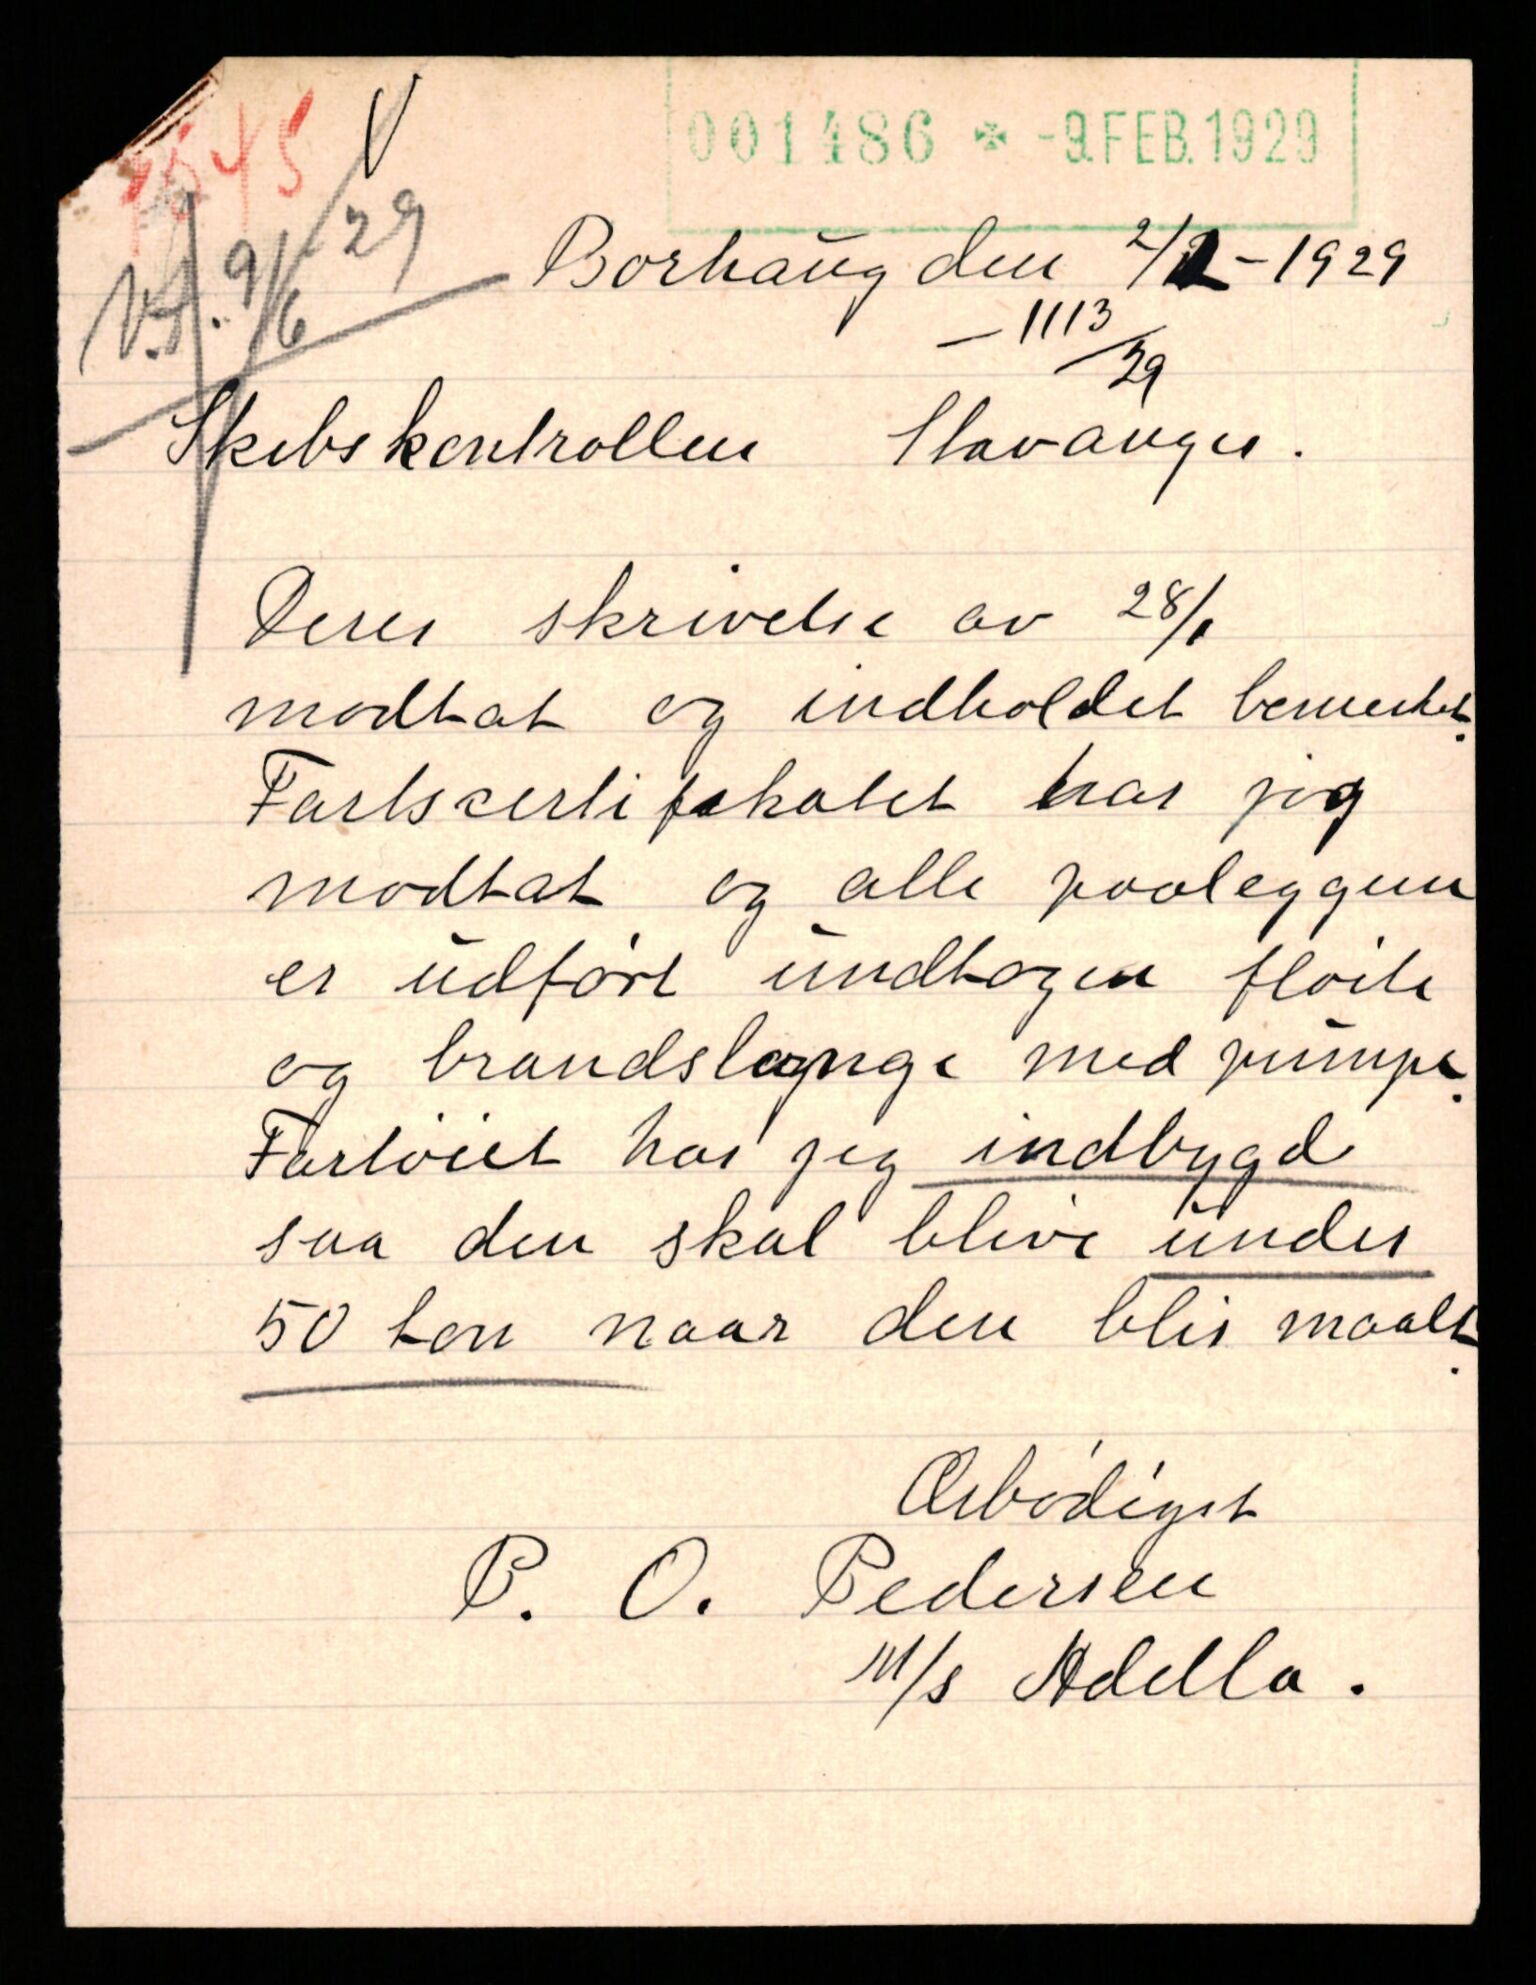 001486 * -9.FEB.1929
V
29
9/6
Borhaug den 2/2 - 1929
- 1113/29
Skibskontrollen Stavanger.
Deres skrivelse av 28/1
modtat og indholdet bemerket.
Fartscertifikatet har jeg
modtat og alle paaleggen
er udført undtagen fløite
og brandslange med pumpe.
Fartøiet har jeg indbygd
saa den skal blive under
50 ton naar den blir maalt.
Ærbødigst
P. O. Pedersen
M/s Adella.